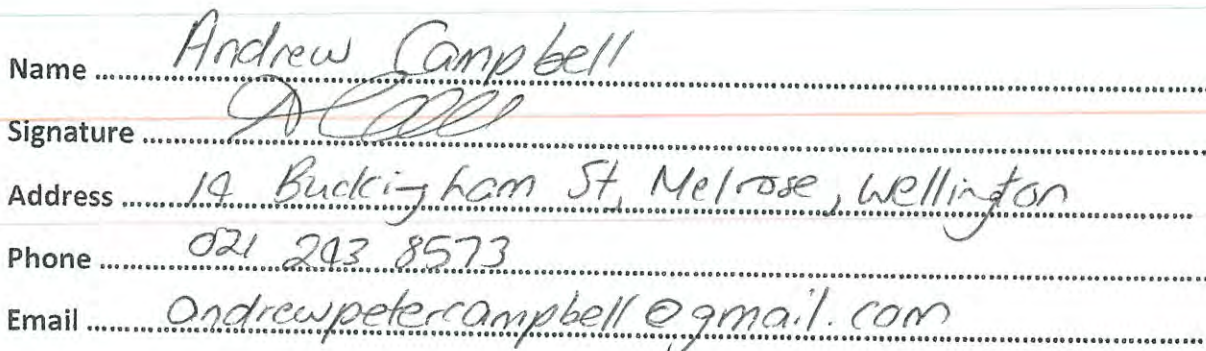 Name Andrew Campbell
Signature
Address 14 Buckingham St, Melrose, Wellington
Phone 021 243 8573
Email andrewpetercampbell@gmail.com